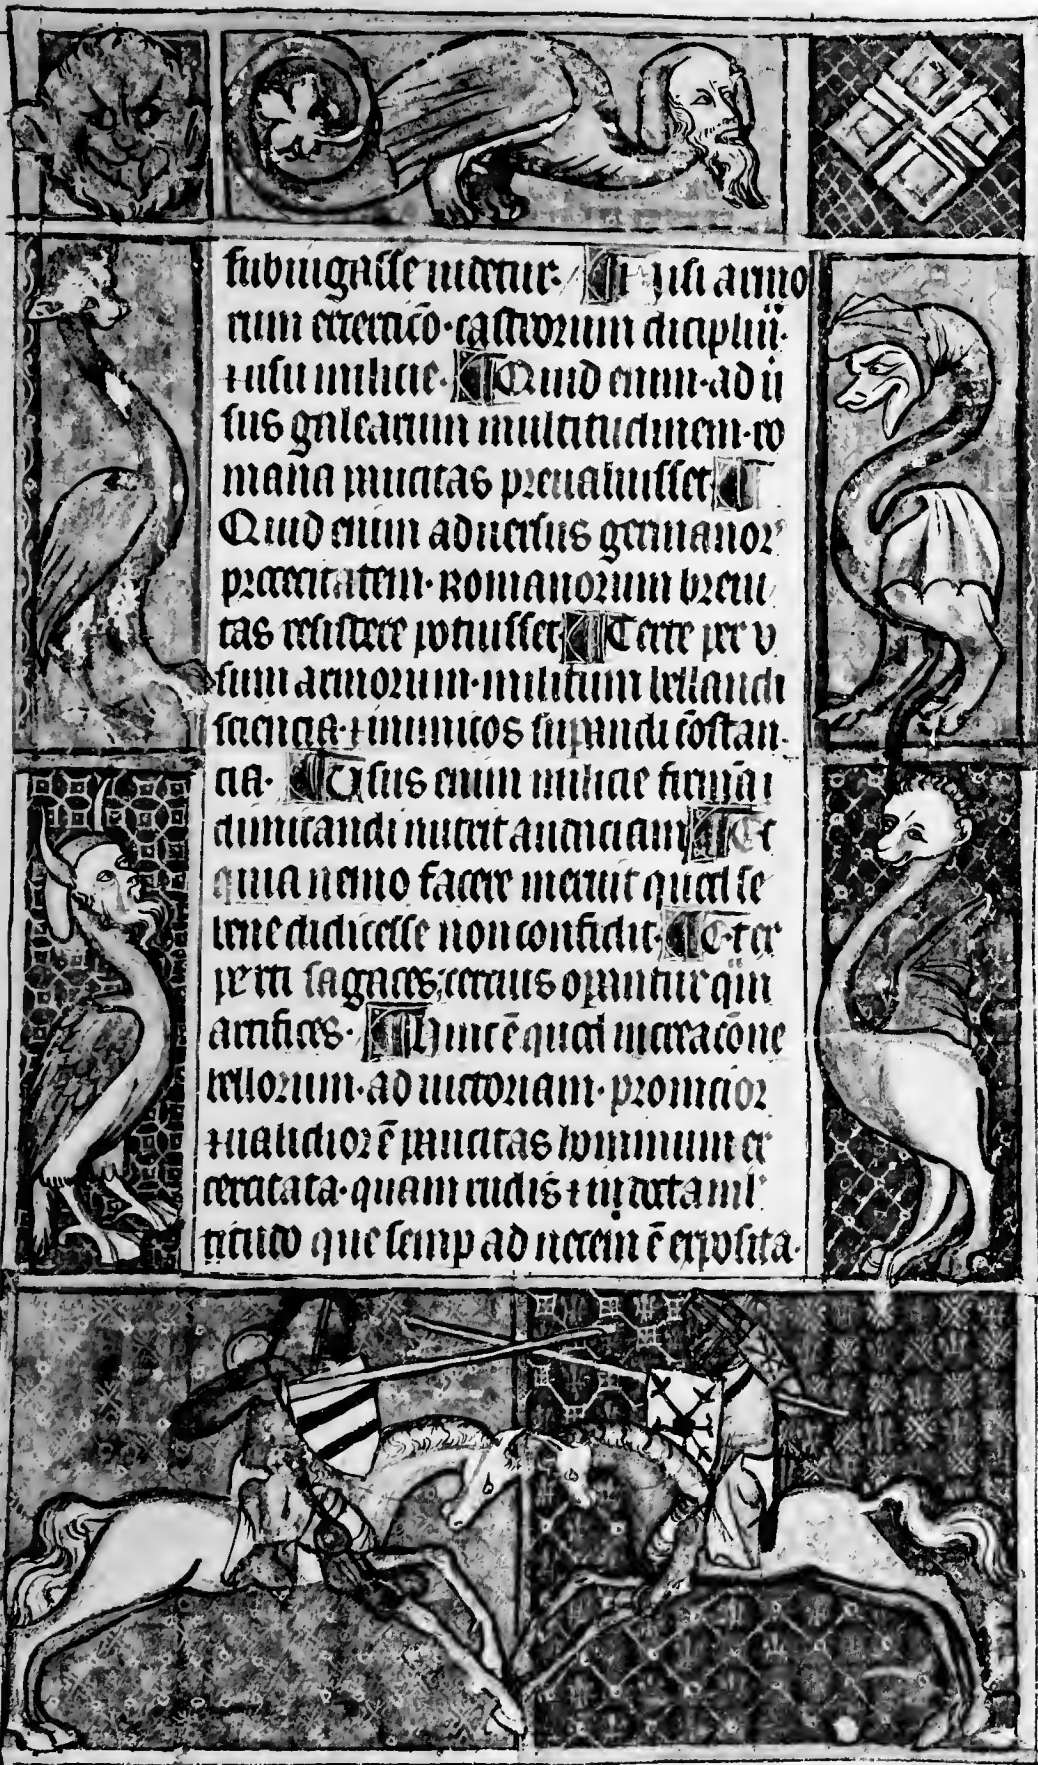 subiugasse uidetur. Ni si armo
rum exercicio · castrorum diciplini·
⁊ usu milicie. Quid enim · ad u
sus galearum multitudinem · ro
mana paucitas preualuisset
Quid enim aduersus germanor
proceritatem · Romanorum breui
tas resistere potuisset Certe per v
sum armorum · militum bellandi
sciencia · ⁊ inimicos supandi cōstan·
cia. Usus enim milicie
dimicandi nutrit audaciam Et
quia nemo facere metuit quod se
bene didicesse non confidit. Et ex
perti sagaces, cercius
artifices. Hinc ē quod
bellorum · ad uictoriam · promcior
⁊ ualidior ē paucitas hominum ex
cercitata · quam rudis ⁊ indocta mł
titudo que semp ad necem ē exposita.